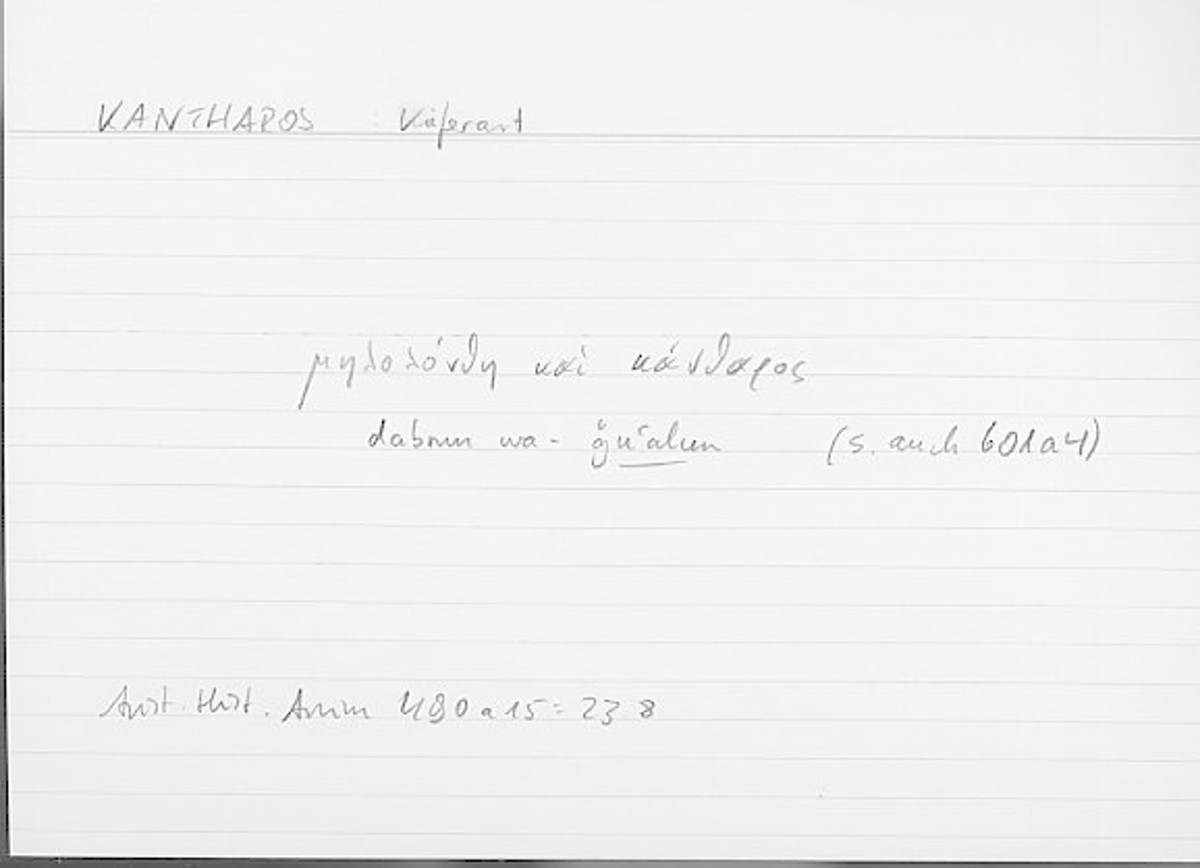 KANTHAROS : Käferart
μηλολόνθη καὶ κάνθαρος
dabrun wa- ǧuʿalun (s. auch 601a4)
Arist. Hist. Anim 490a15 = 23 8